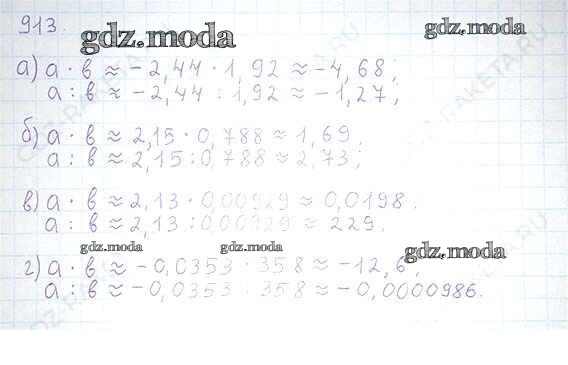 913.
gdz.moda
gdz.moda
а) а · в ≈ -2,44 · 1,92 ≈ -4,68;
а : в ≈ -2,44 : 1,92 ≈ -1,27;
б) а · в ≈ 2,15 · 0,788 ≈ 1,69;
а : в ≈ 2,15 : 0,788 ≈ 2,73;
в) а · в ≈ 2,13 · 0,00929 ≈ 0,0198.
а : в ≈ 2,13 : 0,00929 ≈ 229.
gdz.moda
gdz.moda
gdz.moda
г) а · в ≈ -0,0353 : 358 ≈ -12,6;
а : в ≈ -0,0353 : 358 ≈ -0,0000986.